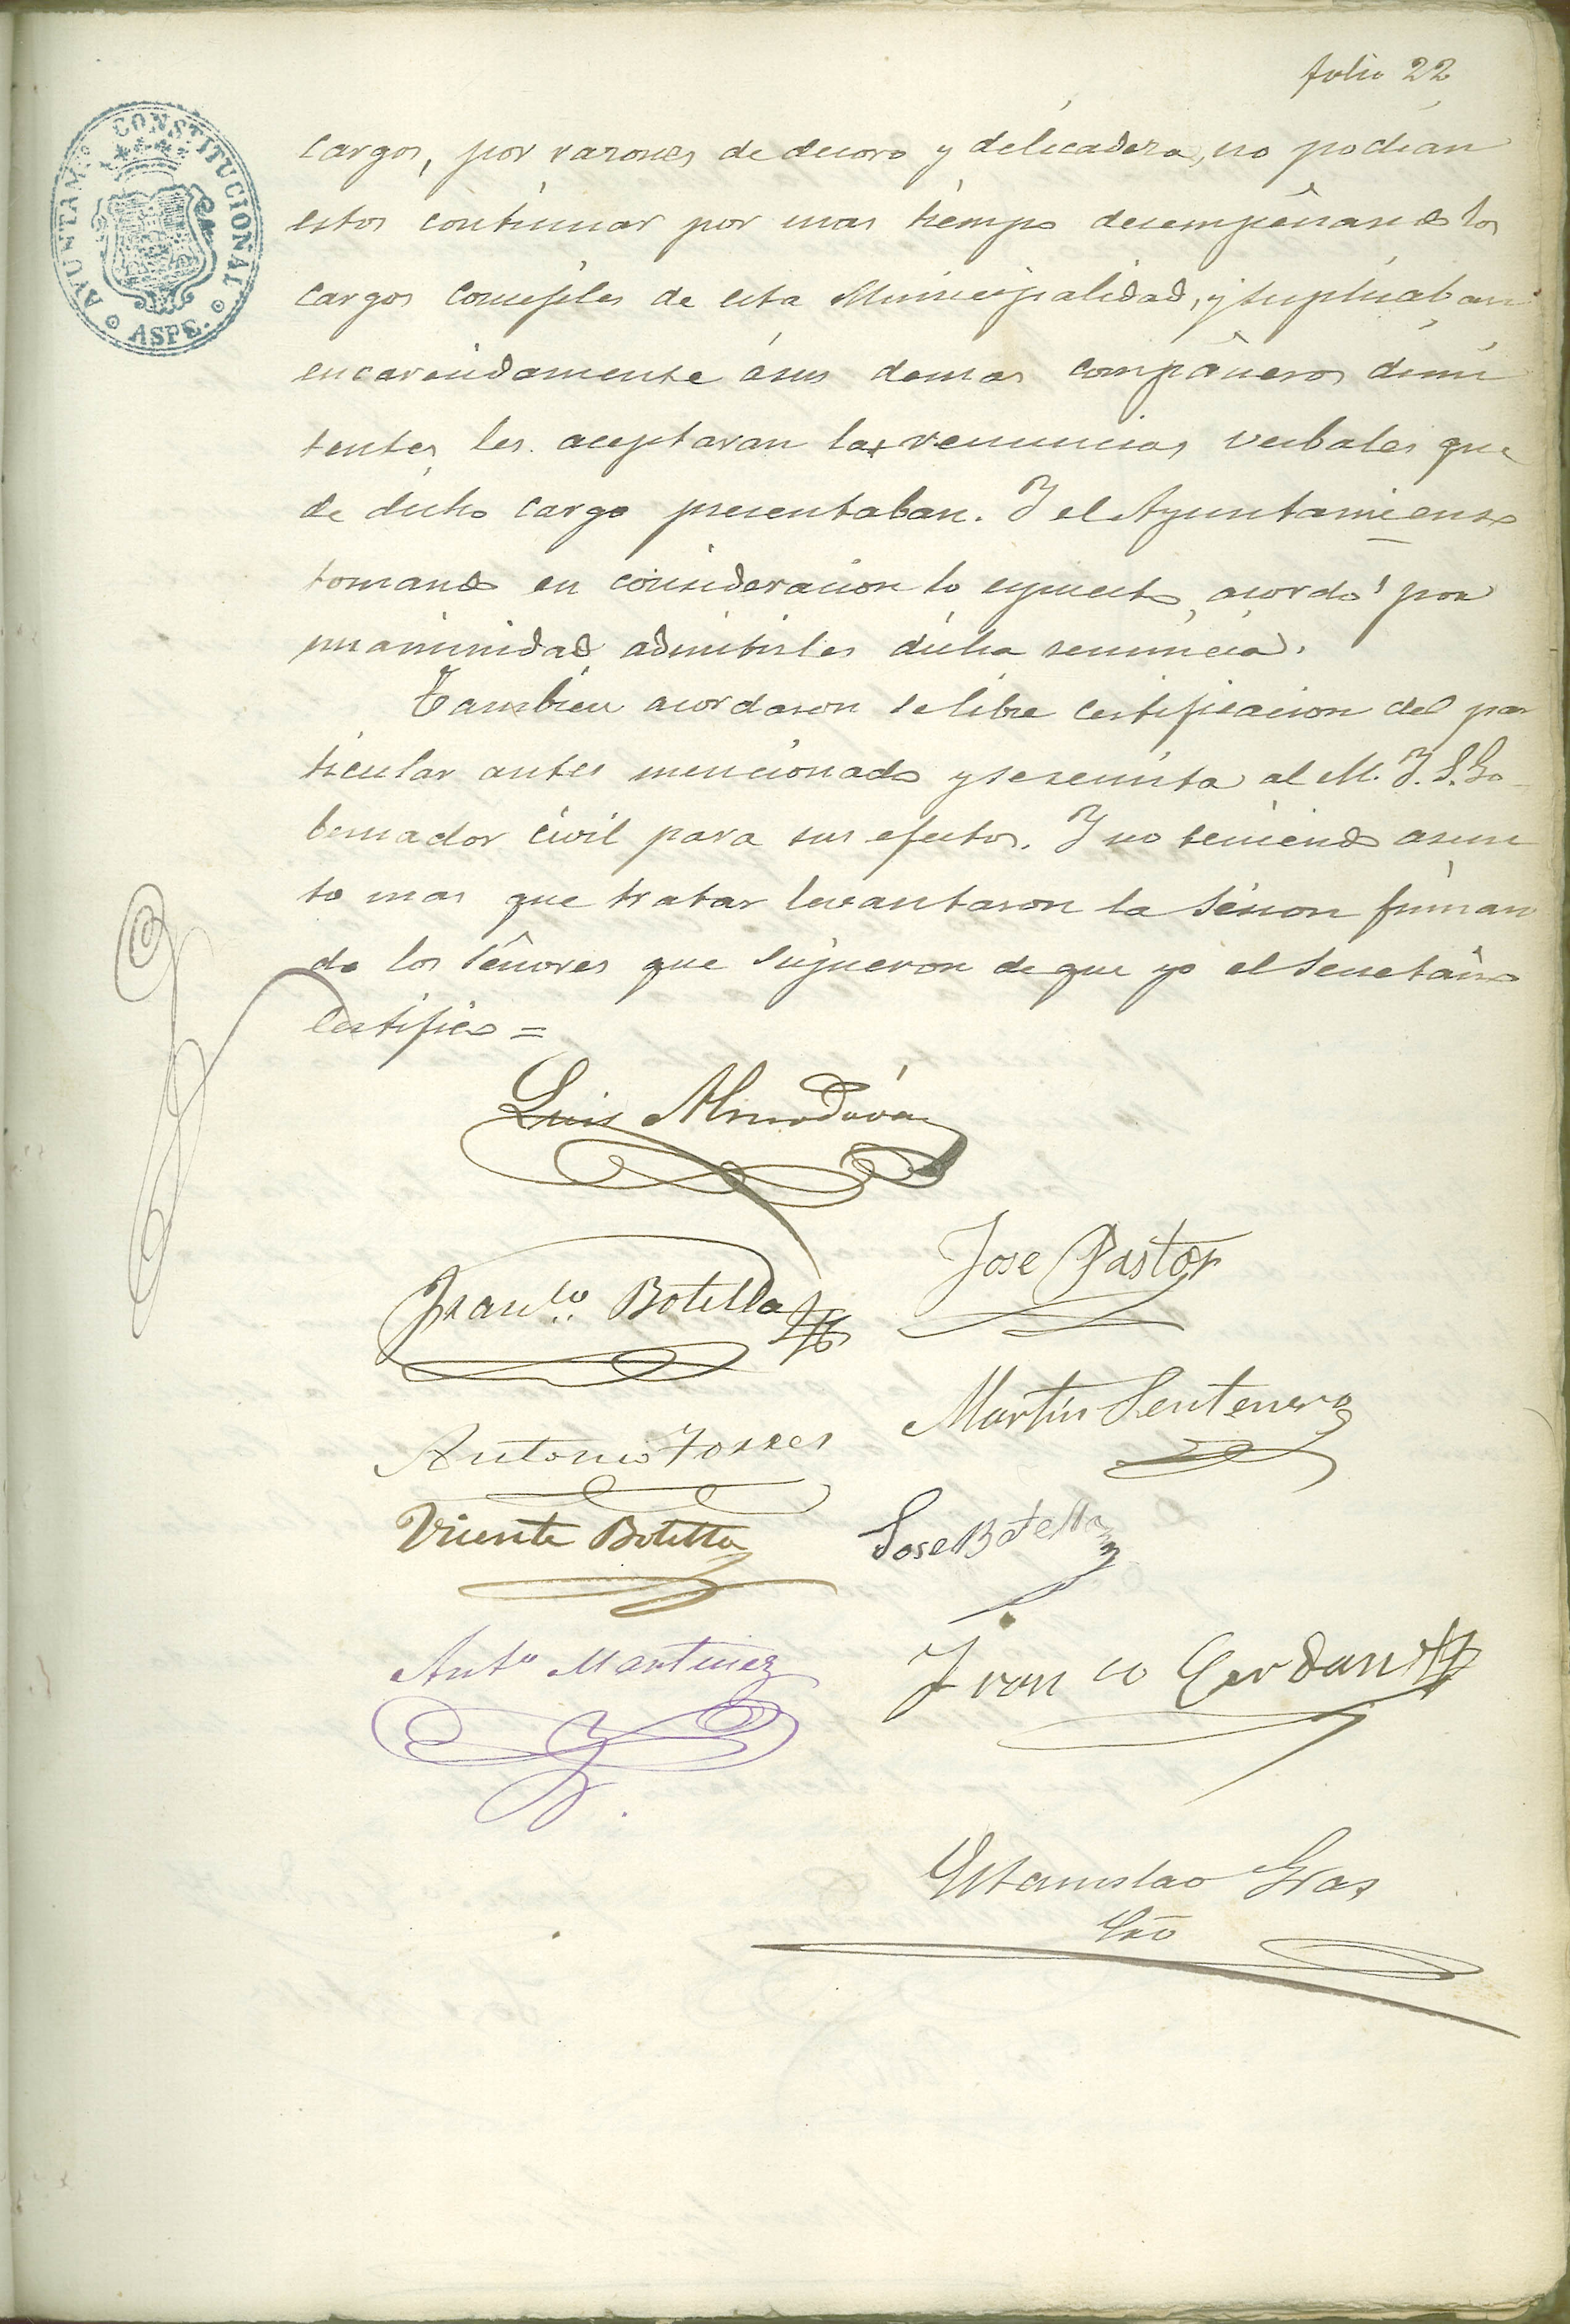 folio 22
AYUNTAMTO CONSTITUCIONAL
ASPE.
cargos, por razones de decoro y delicadeza, no podian
estos continuar por mas tiempo desempeñando los
cargos concejiles de esta Municipalidad, y suplicaban
encarecidamente á sus demas compañeros dimi
tentes les aceptaran las renuncias verbales que
de dicho cargo presentaban. Y el Ayuntamiento
tomando en consideracion lo expuesto, acordó por
unanimidad admitirles dicha renuncia.
Tambien acordaron se libre certificacion del par
ticular antes mencionado y se remita al M. Y. S. Go-
bernador civil para sus efectos. Y no teniendo asun
to mas que tratar levantaron la sesion firman
do los Señores que supieron de que yo el Secretario
Certifico =
Luis Almodóvar
Franco. Botella
Jose Pastor
Antonio Torres
Martín Sentenero
Vicente Botella
Jose Botella
Anto Martinez
Franco Cerdan
Estanislao Gras
Srio